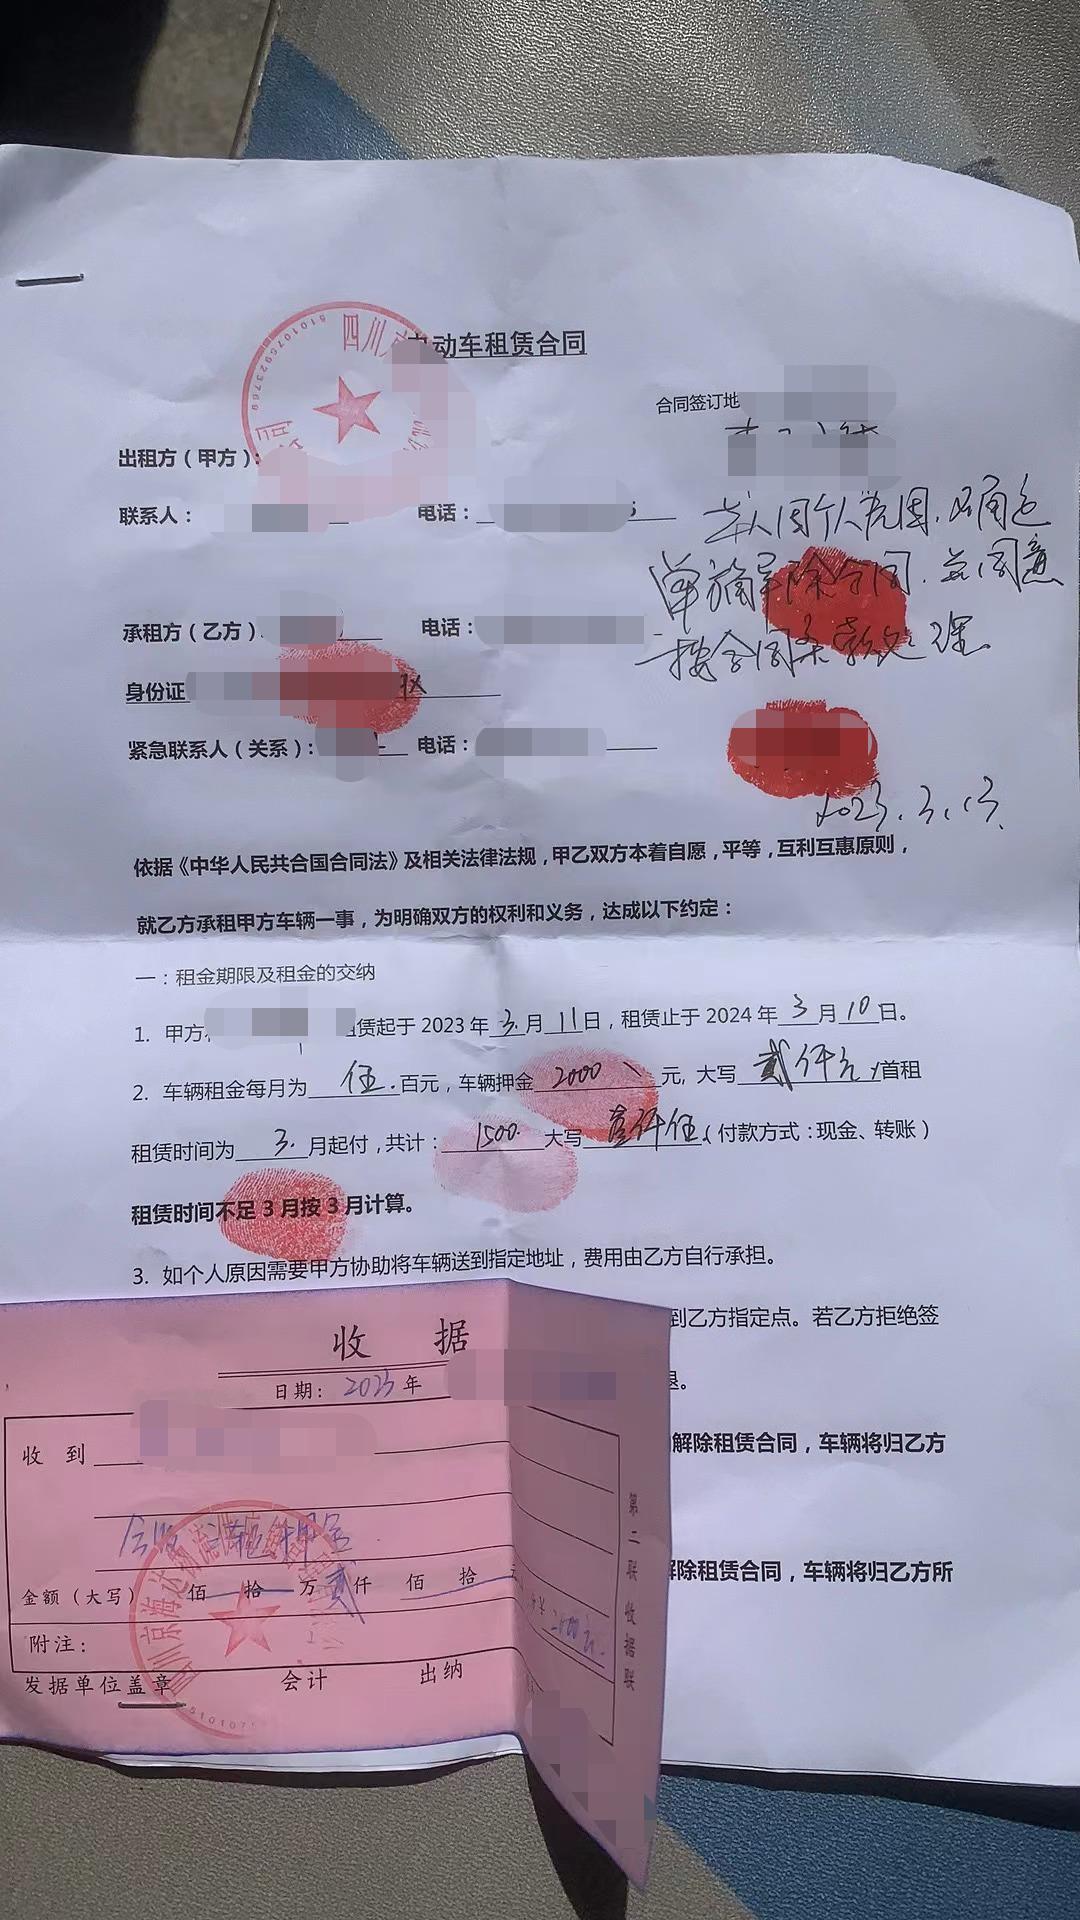 四川
5101075923769
电动车租赁合同
合同签订地
出租方（甲方）：
联系人：
电话：
本人因个人原因，
单方解除合同，并同意
按合同条款处理
承租方（乙方）
电话：
身份证
紧急联系人（关系）：
电话：
2023.3.13
依据《中华人民共合国合同法》及相关法律法规，甲乙双方本着自愿，平等，互利互惠原则，
就乙方承租甲方车辆一事，为明确双方的权利和义务，达成以下约定：
一：租金期限及租金的交纳
1. 甲方 租赁起于 2023 年 3 月 11 日，租赁止于 2024 年 3 月 10 日。
2. 车辆租金每月为 伍 百元，车辆押金 2000 元，大写 贰仟元 /首租
租赁时间为 3 月起付，共计： 1500 大写 壹仟伍（付款方式：现金、转账）
租赁时间不足 3 月按 3 月计算。
3. 如个人原因需要甲方协助将车辆送到指定地址，费用由乙方自行承担。
到乙方指定点。若乙方拒绝签
退。
解除租赁合同，车辆将归乙方
解除租赁合同，车辆将归乙方所
收 据
日期： 2023 年
收 到
押金
金额（大写） 佰 拾 万 贰 仟 佰 拾 元
附注：
发据单位盖章 会计 出纳
第二联 收据联
四川京海达物流
510107